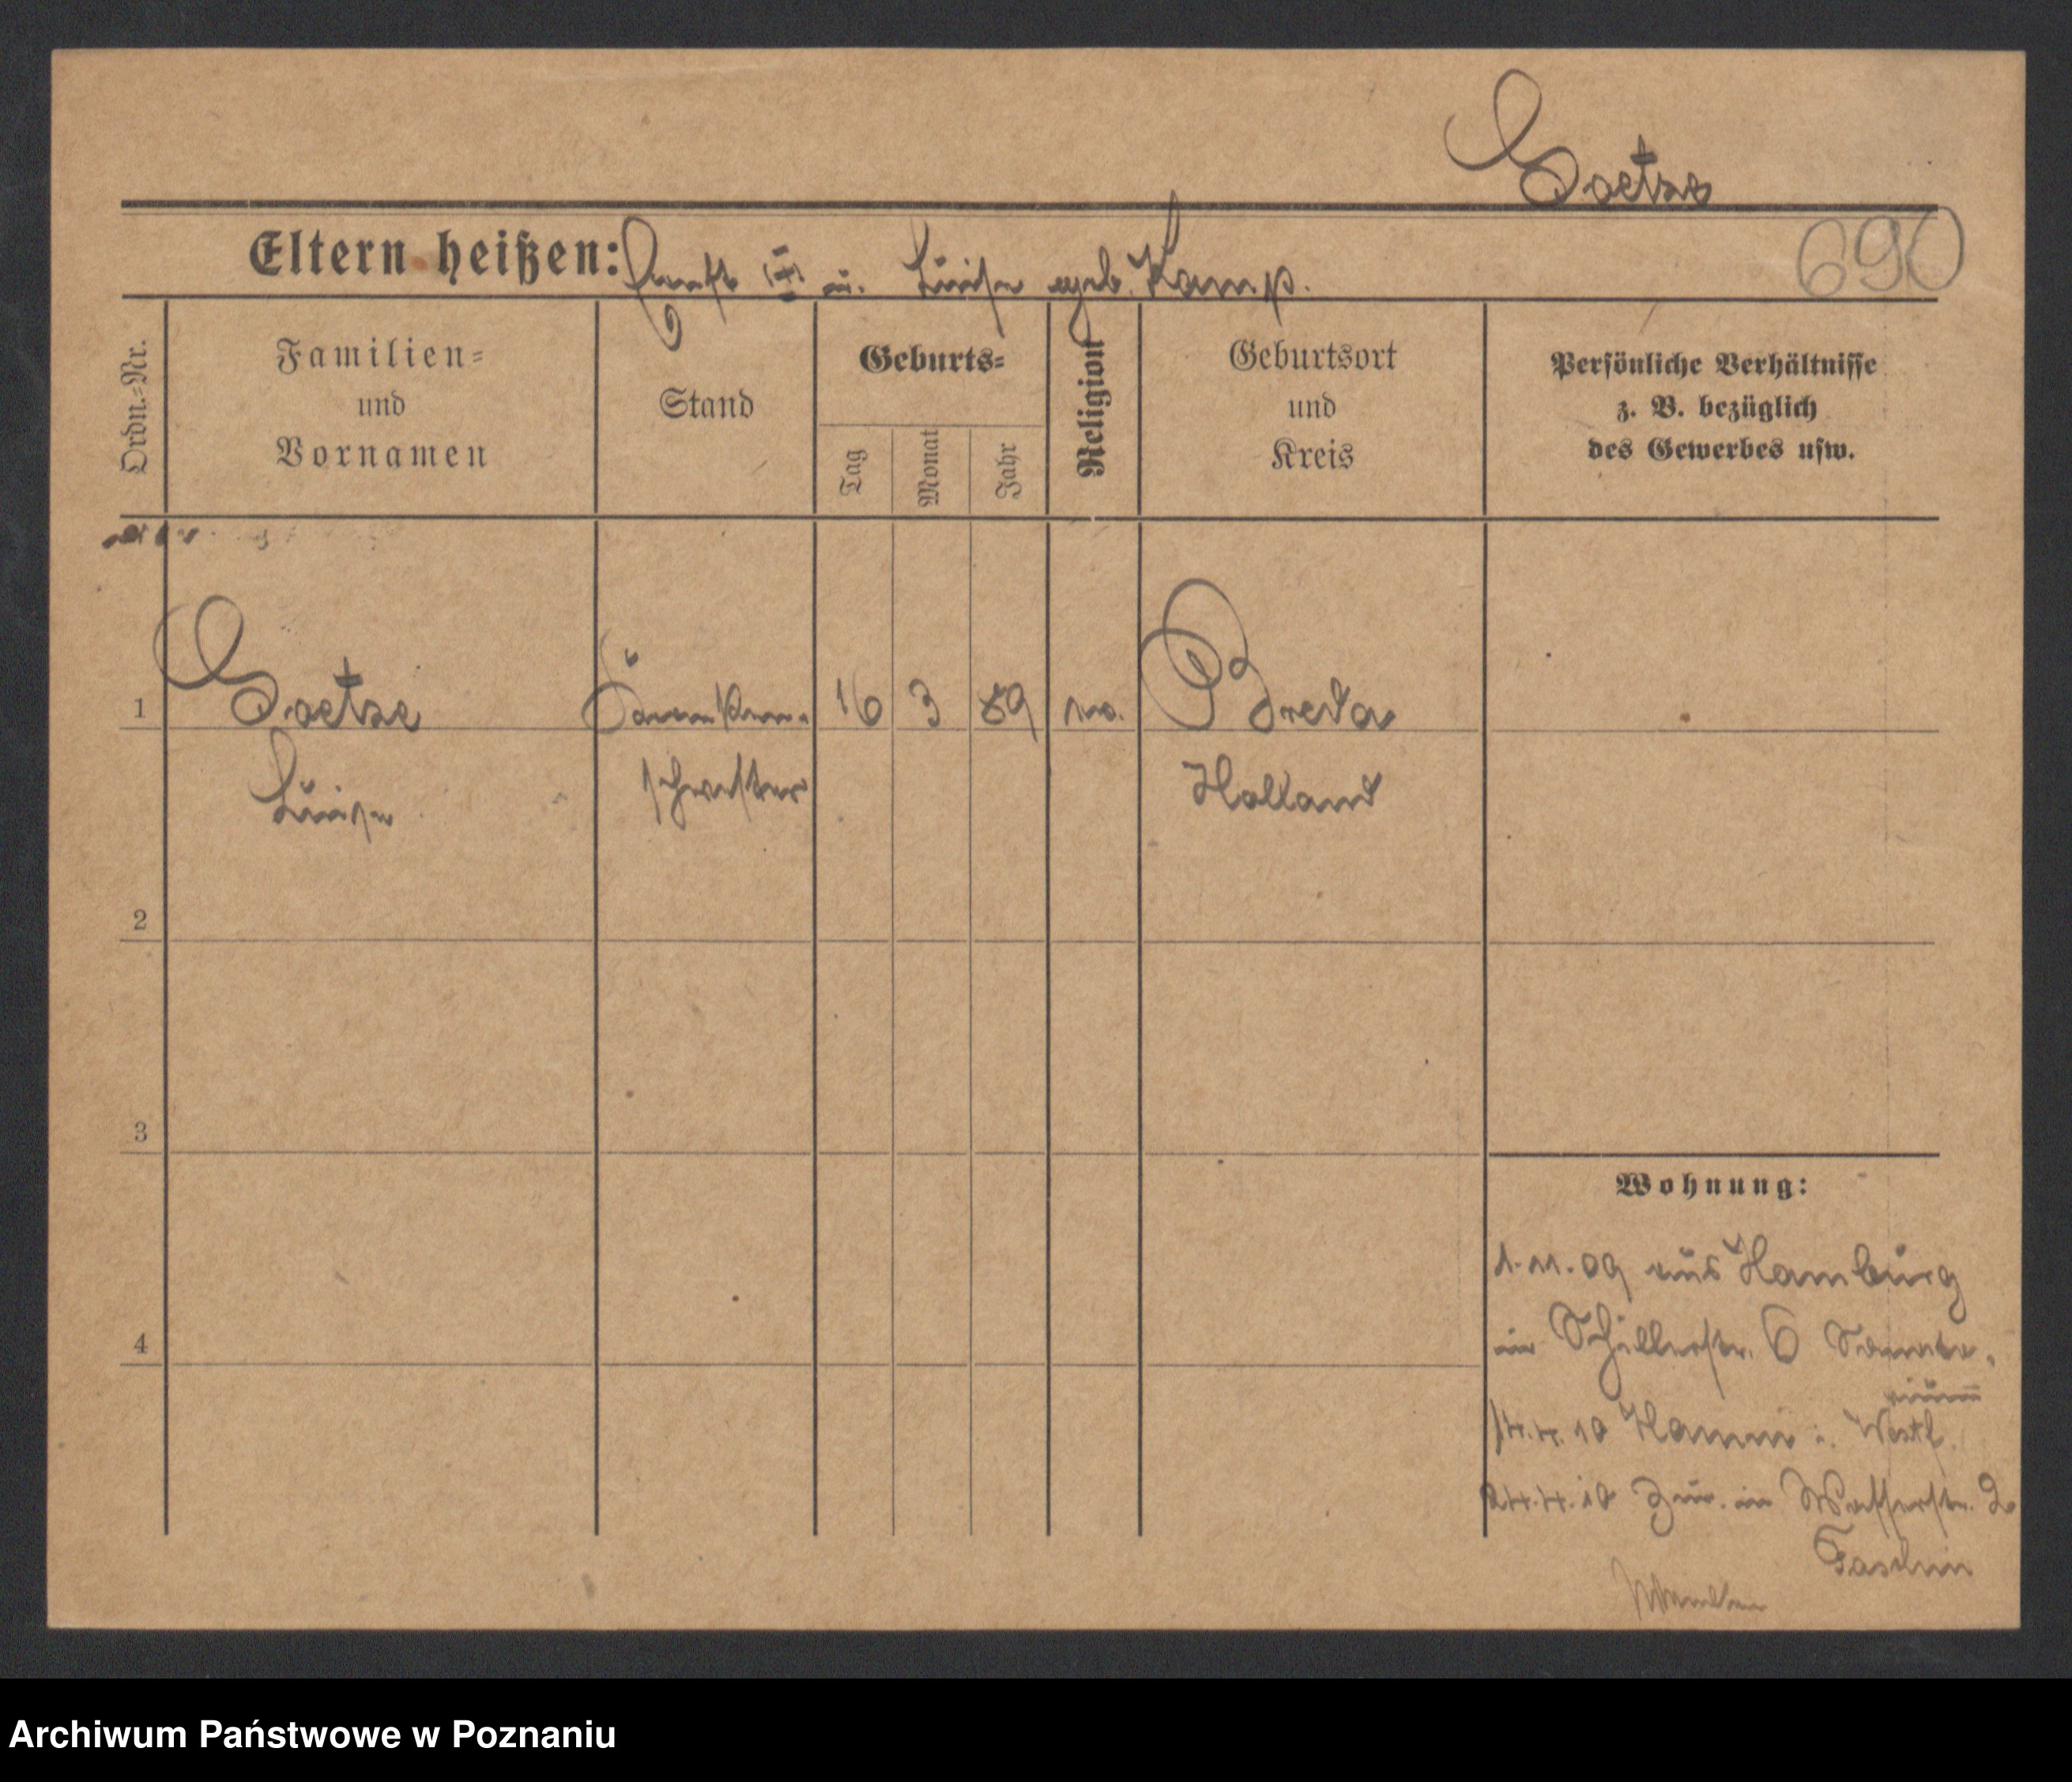 Goetze
Eltern heißen: Ernst (†) u. Luise geb. Kamp.
690
Ordn.-Nr.
Familien-
und
Vornamen
Stand
Geburts-
Tag
Monat
Jahr
Religion
Geburtsort
und
Kreis
Persönliche Verhältnisse
z. B. bezüglich
des Gewerbes usw.
1 Goetze 16 3 89 ev. Breda
Luise schwester Holland
2
3
4
Wohnung:
1.11.09 aus Hamburg
in Schillerstr. 6 Sanato-
rium
14.4.10 Hamm i. Westf.
24.4.10 zur. in Wasserstr. 2
Archiwum Państwowe w Poznaniu